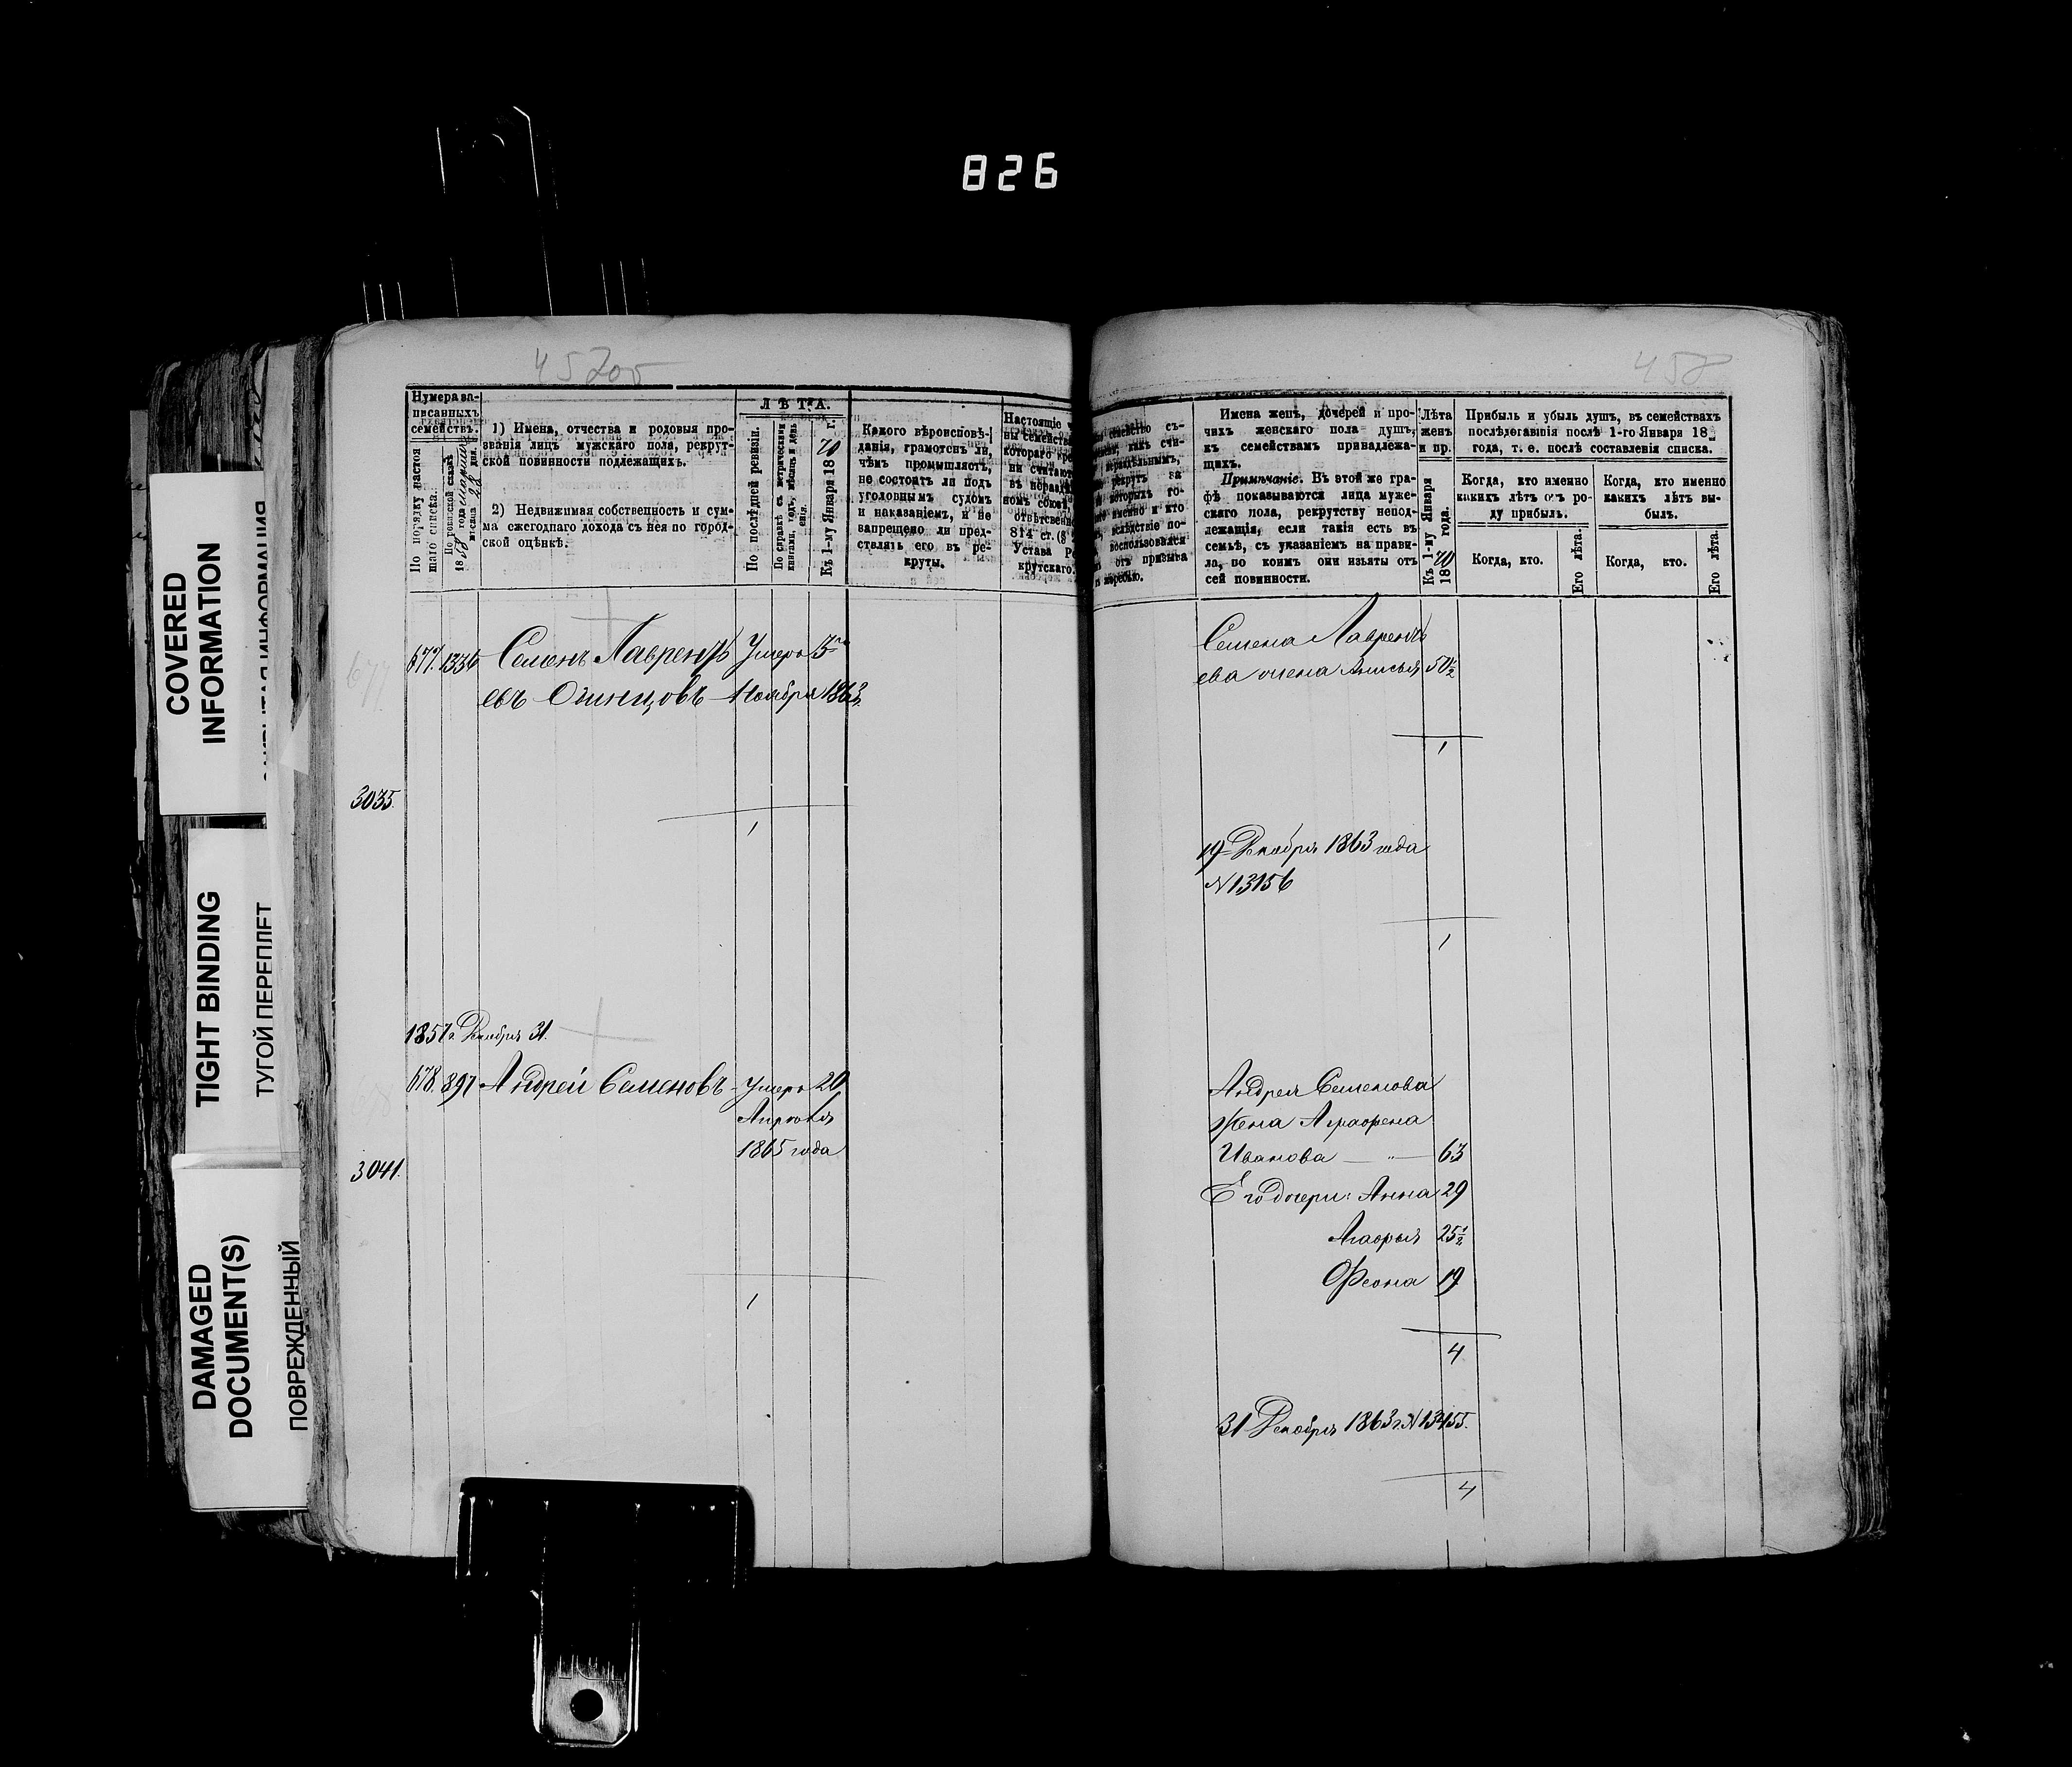 826
COVERED
INFORMATION
TIGHT BINDING
ТУГОЙ ПЕРЕПЛЕТ
DAMAGED
DOCUMENT(S)
ПОВРЕЖДЕННЫЙ
457об
Нумера за-
писанныхъ
семействъ.
По порядку настоя
щаго списка.
1) Имена, отчества и родовыя про-
званія лицъ мужскаго пола, рекрут-
ской повинности подлежащихъ.
2) Недвижимая собственность и сум-
ма ежегоднаго дохода съ нея по город-
ской оцѣнкѣ.
ЛѢТА.
По послѣдней ревизіи.
По справкѣ съ метрическими
книгами, годъ, мѣсяцъ и день
Къ 1-му Января 1870 г.
Какого вѣроисповѣ-
данія, грамотенъ ли,
чѣмъ промышляетъ,
не состоитъ ли подъ
уголовнымъ судомъ
и наказаніемъ, и не
запрещено ли пред-
ставлять его въ ре-
круты.
Настоящіе
семейства
котораго
ни считаю
въ нераз
номъ союз
отвѣтственн
814 ст. (§
Устава Ре
крутскаго.
677
677. 1336 Семенъ Лаврентъ Умеръ 3го
евъ Одинцовъ Ноября 1863
3035.
1
1857 г. Декабря 31.
678. 897 Андрей Семеновъ Умеръ 20
Апрѣля
1865 года
3041.
1
458
Имена женъ, дочерей и про-
чихъ женскаго пола душъ,
къ семействамъ принадлежа-
щихъ.
Примѣчаніе. Въ этой же гра-
фѣ показываются лица муже-
скаго пола, рекрутству непод-
лежащія, если такія есть въ
семьѣ, съ указаніемъ на прави-
ла, по коимъ они изъяты отъ
сей повинности.
Лѣта
женъ
и пр.
Къ 1-му Января
1870 года.
Прибыль и убыль душъ, въ семействахъ
послѣдовавшія послѣ 1-го Января 18
года, т. е. послѣ составленія списка.
Когда, кто именно
какихъ лѣтъ отъ ро-
ду прибылъ.
Когда, кто именно
какихъ лѣтъ вы-
былъ.
Когда, кто.
Его лѣта.
Когда, кто.
Его лѣта.
Семена Лаврентъ
ева жена Анисья 50½
1
19 Декабря 1863 года
N 13156
1
Андрея Семенова
Жена Аграфена
Иванова — " — 63
Его дочери: Анна 29
Агафья 25½
Феона 19
4
31 Декабря 1863 г. N 13455.
4